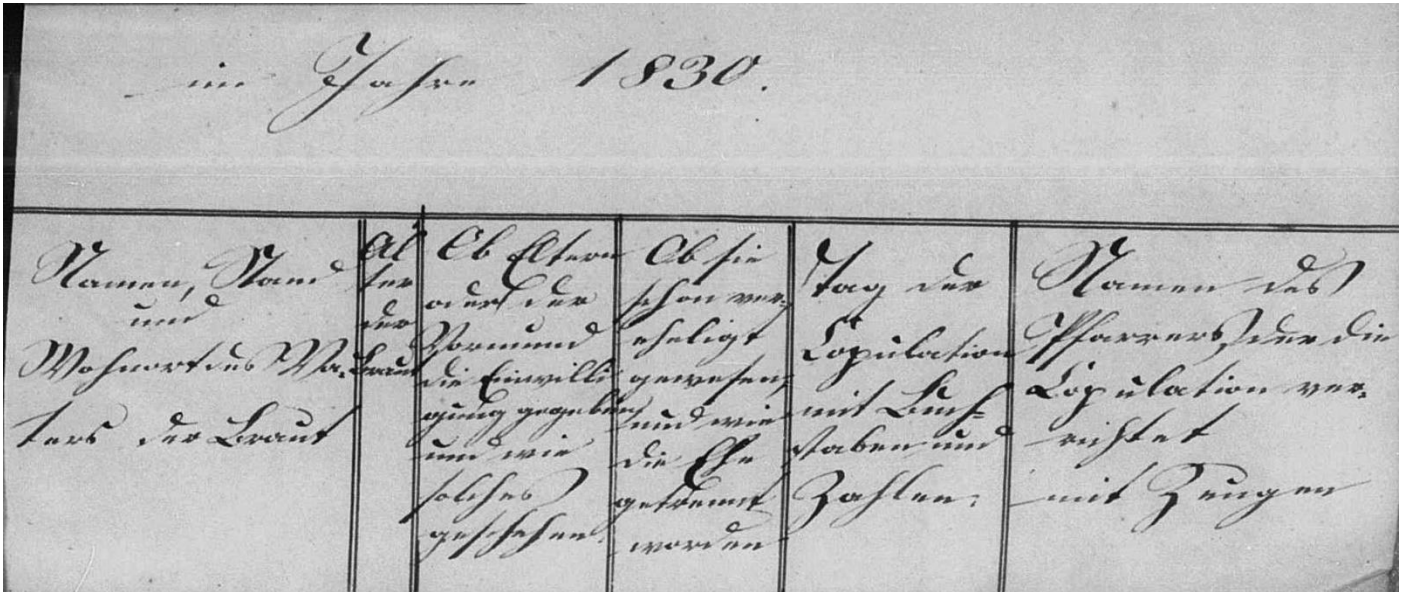 im Jahre 1830.
Namen, Stand
und
Wohnort des Va-
ters der Braut
Al
ter
der
Braut
Ob Eltern
oder der
Vormund
die Einwilli
gung gegeben
und wie
solches
geschehen
Ob sie
schon ver-
eheligt
gewesen,
und wie
die Ehe
getrennt
worden
Tag der
Copulation
mit Buch-
staben und
Zahlen.
Namen des
Pfarrers, der die
Copulation ver-
richtet
mit Zeugen